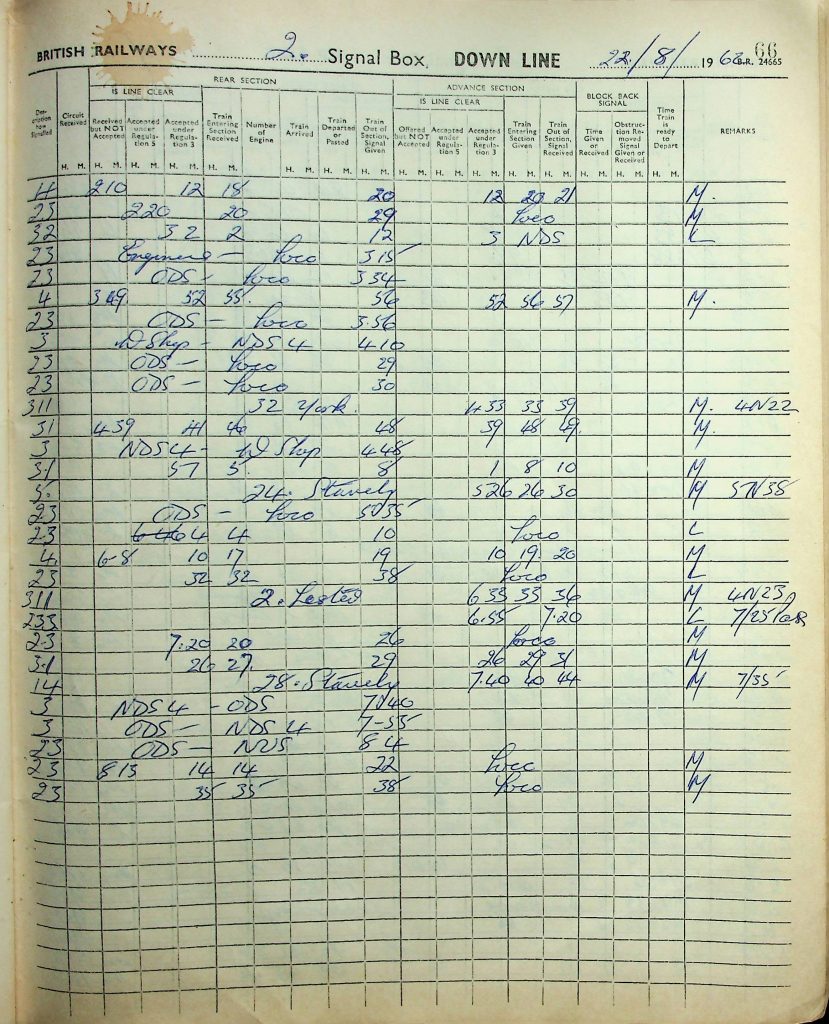 66
BRITISH RAILWAYS 2. Signal Box, DOWN LINE 22/8/1962 B.R. 24665
REAR SECTION ADVANCE SECTION
IS LINE CLEAR IS LINE CLEAR BLOCK BACK SIGNAL
Description how Signalled Circuit Received Received but NOT Accepted Accepted under Regulation 5 Accepted under Regulation 3 Train Entering Section Received Number of Engine Train Arrived Train Departed or Passed Train Out of Section, Signal Given Offered but NOT Accepted Accepted under Regulation 5 Accepted under Regulation 3 Train Entering Section Given Train Out of Section, Signal Received Time Given or Received Obstruction Removed Signal Given or Received Time Train is ready to Depart REMARKS
H. M. H. M. H. M. H. M. H. M. H. M. H. M. H. M. H. M. H. M. H. M. H. M. H. M. H. M. H. M. H. M.
4 210 12 18 20 12 20 21 M.
23 220 20 29 Loco M
32 3 2 2 12 3 NDS L
23 Engine — Loco 315
23 ODS — Loco 354
4 349 52 55 56 52 56 57 M.
23 ODS — Loco 3.56
3 W Shop — NDS 4 410
23 ODS — Loco 29
23 ODS — Loco 30
311 32 York. 433 33 39 M. 4N22
31 439 41 46 48 39 48 49. M.
3 NDS4 — W Shop 448
3.1 57 5 8 1 8 10 M
5. 24. Stavely 526 26 30 M 5N38
23 ODS — Loco 5.35
23 4 4 10 Loco L
4. 6-8 10 17 19 10 19 20 M
23 32 32 38 Loco L
311 2. 6 33 33 36 M 4N23
233 6.55 7.20 L 7/25
23 7.20 20 26 Loco M
3.1 26 27. 29 26 29 31 M
14 28. Stavely 7.40 40 44 M 7/35
3 NDS4 — ODS 7.40
3 ODS — NDS 4 7-55
23 ODS — 8 4
23 8 13 14 14 22 Loco M
23 35 35 38 Loco M